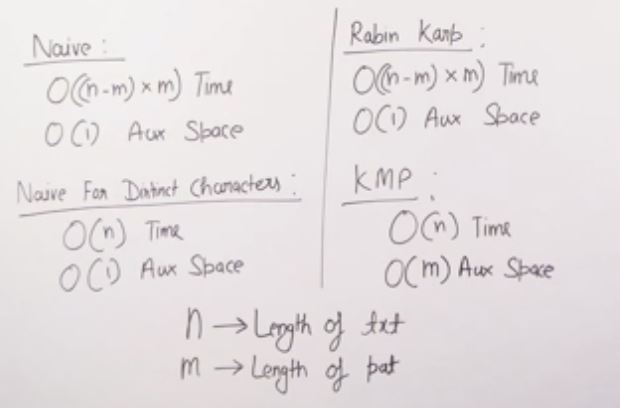 Naive :
O((n-m) × m) Time
O(1) Aux Space
Naive For Distinct Characters :
O(n) Time
O(1) Aux Space
Rabin Karp :
O((n-m) × m) Time
O(1) Aux Space
KMP :
O(n) Time
O(m) Aux Space
n → Length of txt
m → Length of pat